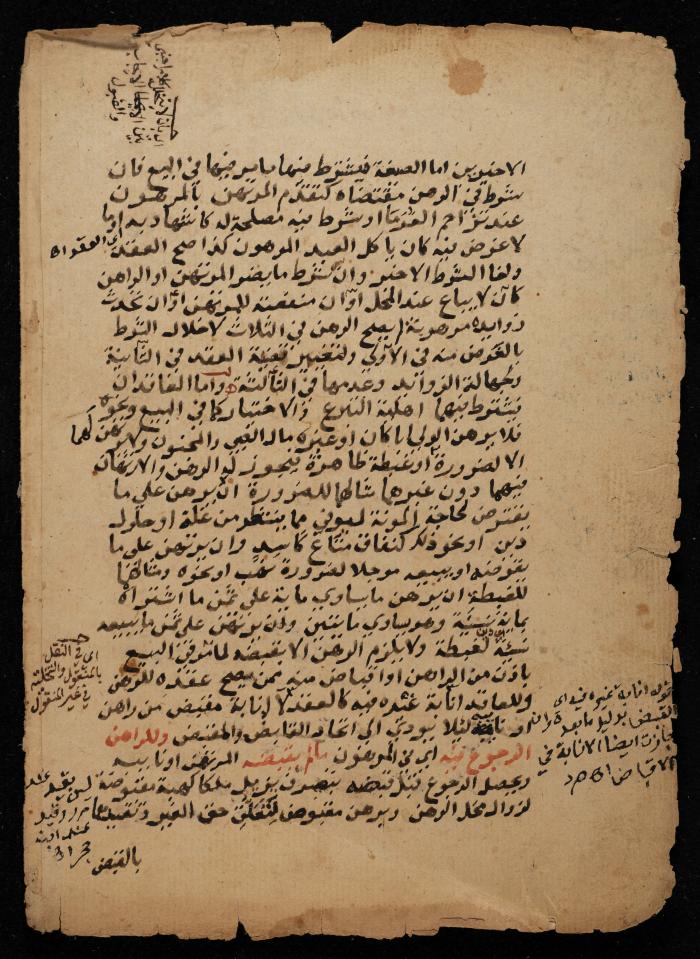 الاخيرين اما الصيغة فيشترط فيها ما يرضيها في البيع فان
شرط في الرهن مقتضاه كتقدم المرتهن بالمرهون
عند تزاحم الغرماء او شرط فيه مصلحة له كاشهاد به او ما
لا غرض فيه كان ياكل العبد المرهون كذا صح العقد
ولغا الشرط الاخير وان شرط ما يضر المرتهن او الراهن
كان لا يباع عند المحل او ان منفعته للمرتهن او ان تحدث
زوايده مرهونة لم يصح الرهن في الثلاث لاخلال الشرط
بالغرض منه في الاولي ولتغيير قضية العقد في الثانية
ولجهالة الزوائد وعدمها في الثالثة واما العاقدان
فيشترط فيهما اهلية التبرع والاختيار كما في البيع ونحوه
فلا يرهن الولي ابا كان او غيره مال الصبي والمجنون ولا يرتهن لهما
الا لضرورة او غبطة ظاهرة فيجوز له الرهن والارتهان
فيهما دون غيرهما مثالهما للضرورة ان يرهن علي ما
يقترض لحاجة المونة ليوفي مما ينتظر من غلة او حلول
دين او نحو ذلك كنفاق متاع كاسد وان يرتهن علي ما
يقرضه او يبيعه موجلا لضرورة نهب او نحوه ومثالهما
للغبطة ان يرهن ما يساوي ماية علي ثمن ما اشتراه
بماية نسيئة وهو يساوي مايتين وان يرتهن علي ثمن ما يبيعه
نسيئة لغبطة ولا يلزم الرهن الا بقبضه لما مر في البيع
باذن من الراهن او اقباض منه ممن يصح عقده للرهن
وللعاقد انابة غيره فيه كالعقد لا انابة مقبض من راهن
او نايبه ليلا يودي الي اتحاد القابض والمقبض وللراهن
الرجوع فيه اي في المرهون ما لم يقبضه المرتهن او نايبه
ويحصل الرجوع قبل قبضه بتصرف يزيل ملكا كهبة مقبوضة
لزوال محل الرهن وبرهن مقبوض لتعلق حق الغير وتقييدهما
بالقبض
اي في النقل
بالمنقول والتخلية
في غير المنقول
قوله انابة غيره فيه اي
القبض بدليل ما بعده
جازت ايضا الانابة في
الاقباض